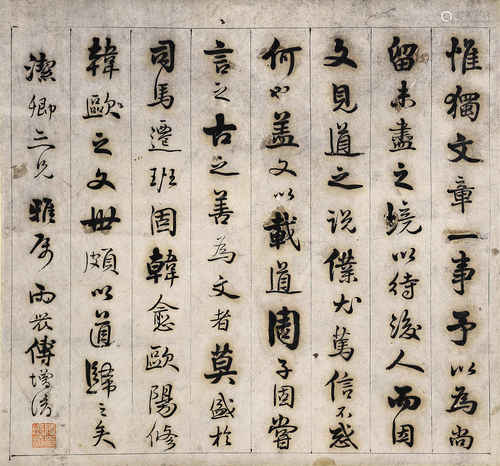 惟獨文章一事予以為尚
留未盡之境以待後人而因
文見道之說僕尤篤信不惑
何也蓋文以載道固子固嘗
言之古之善為文者莫盛於
司馬遷班固韓愈歐陽修
韓歐之文毋頗以道歸之矣
潔卿三兄雅屬雨農傅增淯